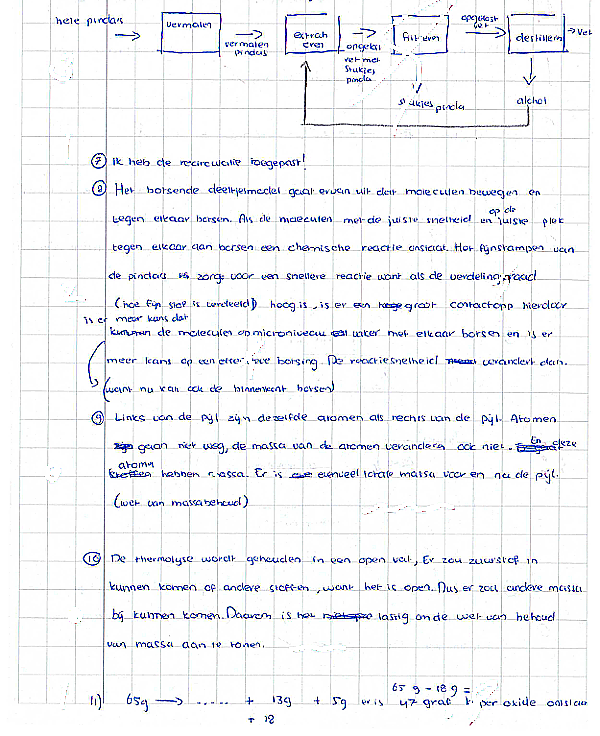 hele pindas
vermalen
vermalen pindas
extraheren
ongelost vet met stukjes pinda
filtreren
opgelost vet
destilleren
vet
stukjes pinda
alchol
7 Ik heb de recirculatie toegepast!
8 Het botsende deeltjesmodel gaat ervan uit dat moleculen bewegen en
tegen elkaar botsen. Als de moleculen met de juiste snelheid en op de juiste plek
tegen elkaar aan botsen een chemische reactie ontstaat. Het fijnstampen van
de pinda's zorgt voor een snellere reactie want als de verdelingsgraad
(hoe fijn stof is verdeeld) hoog is, is er een groot contactopp hierdoor
is er meer kans dat
de moleculen op microniveau vaker met elkaar botsen en is er
meer kans op een effectieve botsing. De reactiesnelheid verandert dan.
(want nu kan ook de binnenkant botsen)
9 Links van de pijl zijn dezelfde atomen als rechts van de pijl. Atomen
gaan niet weg, de massa van de atomen veranderen ook niet. En deze
atomen hebben massa. Er is evenveel totale massa voor en na de pijl.
(wet van massabehoud)
10 De thermolyse wordt gehouden in een open vat, Er zou zuurstof in
kunnen komen of andere stoffen, want het is open. Dus er zou andere massa
bij kunnen komen. Daarom is het lastig om de wet van behoud
van massa aan te tonen.
65 g - 18 g =
11) 65g → ...... + 13g + 5g er is 47 gra per oxide ontstaan
+ 18